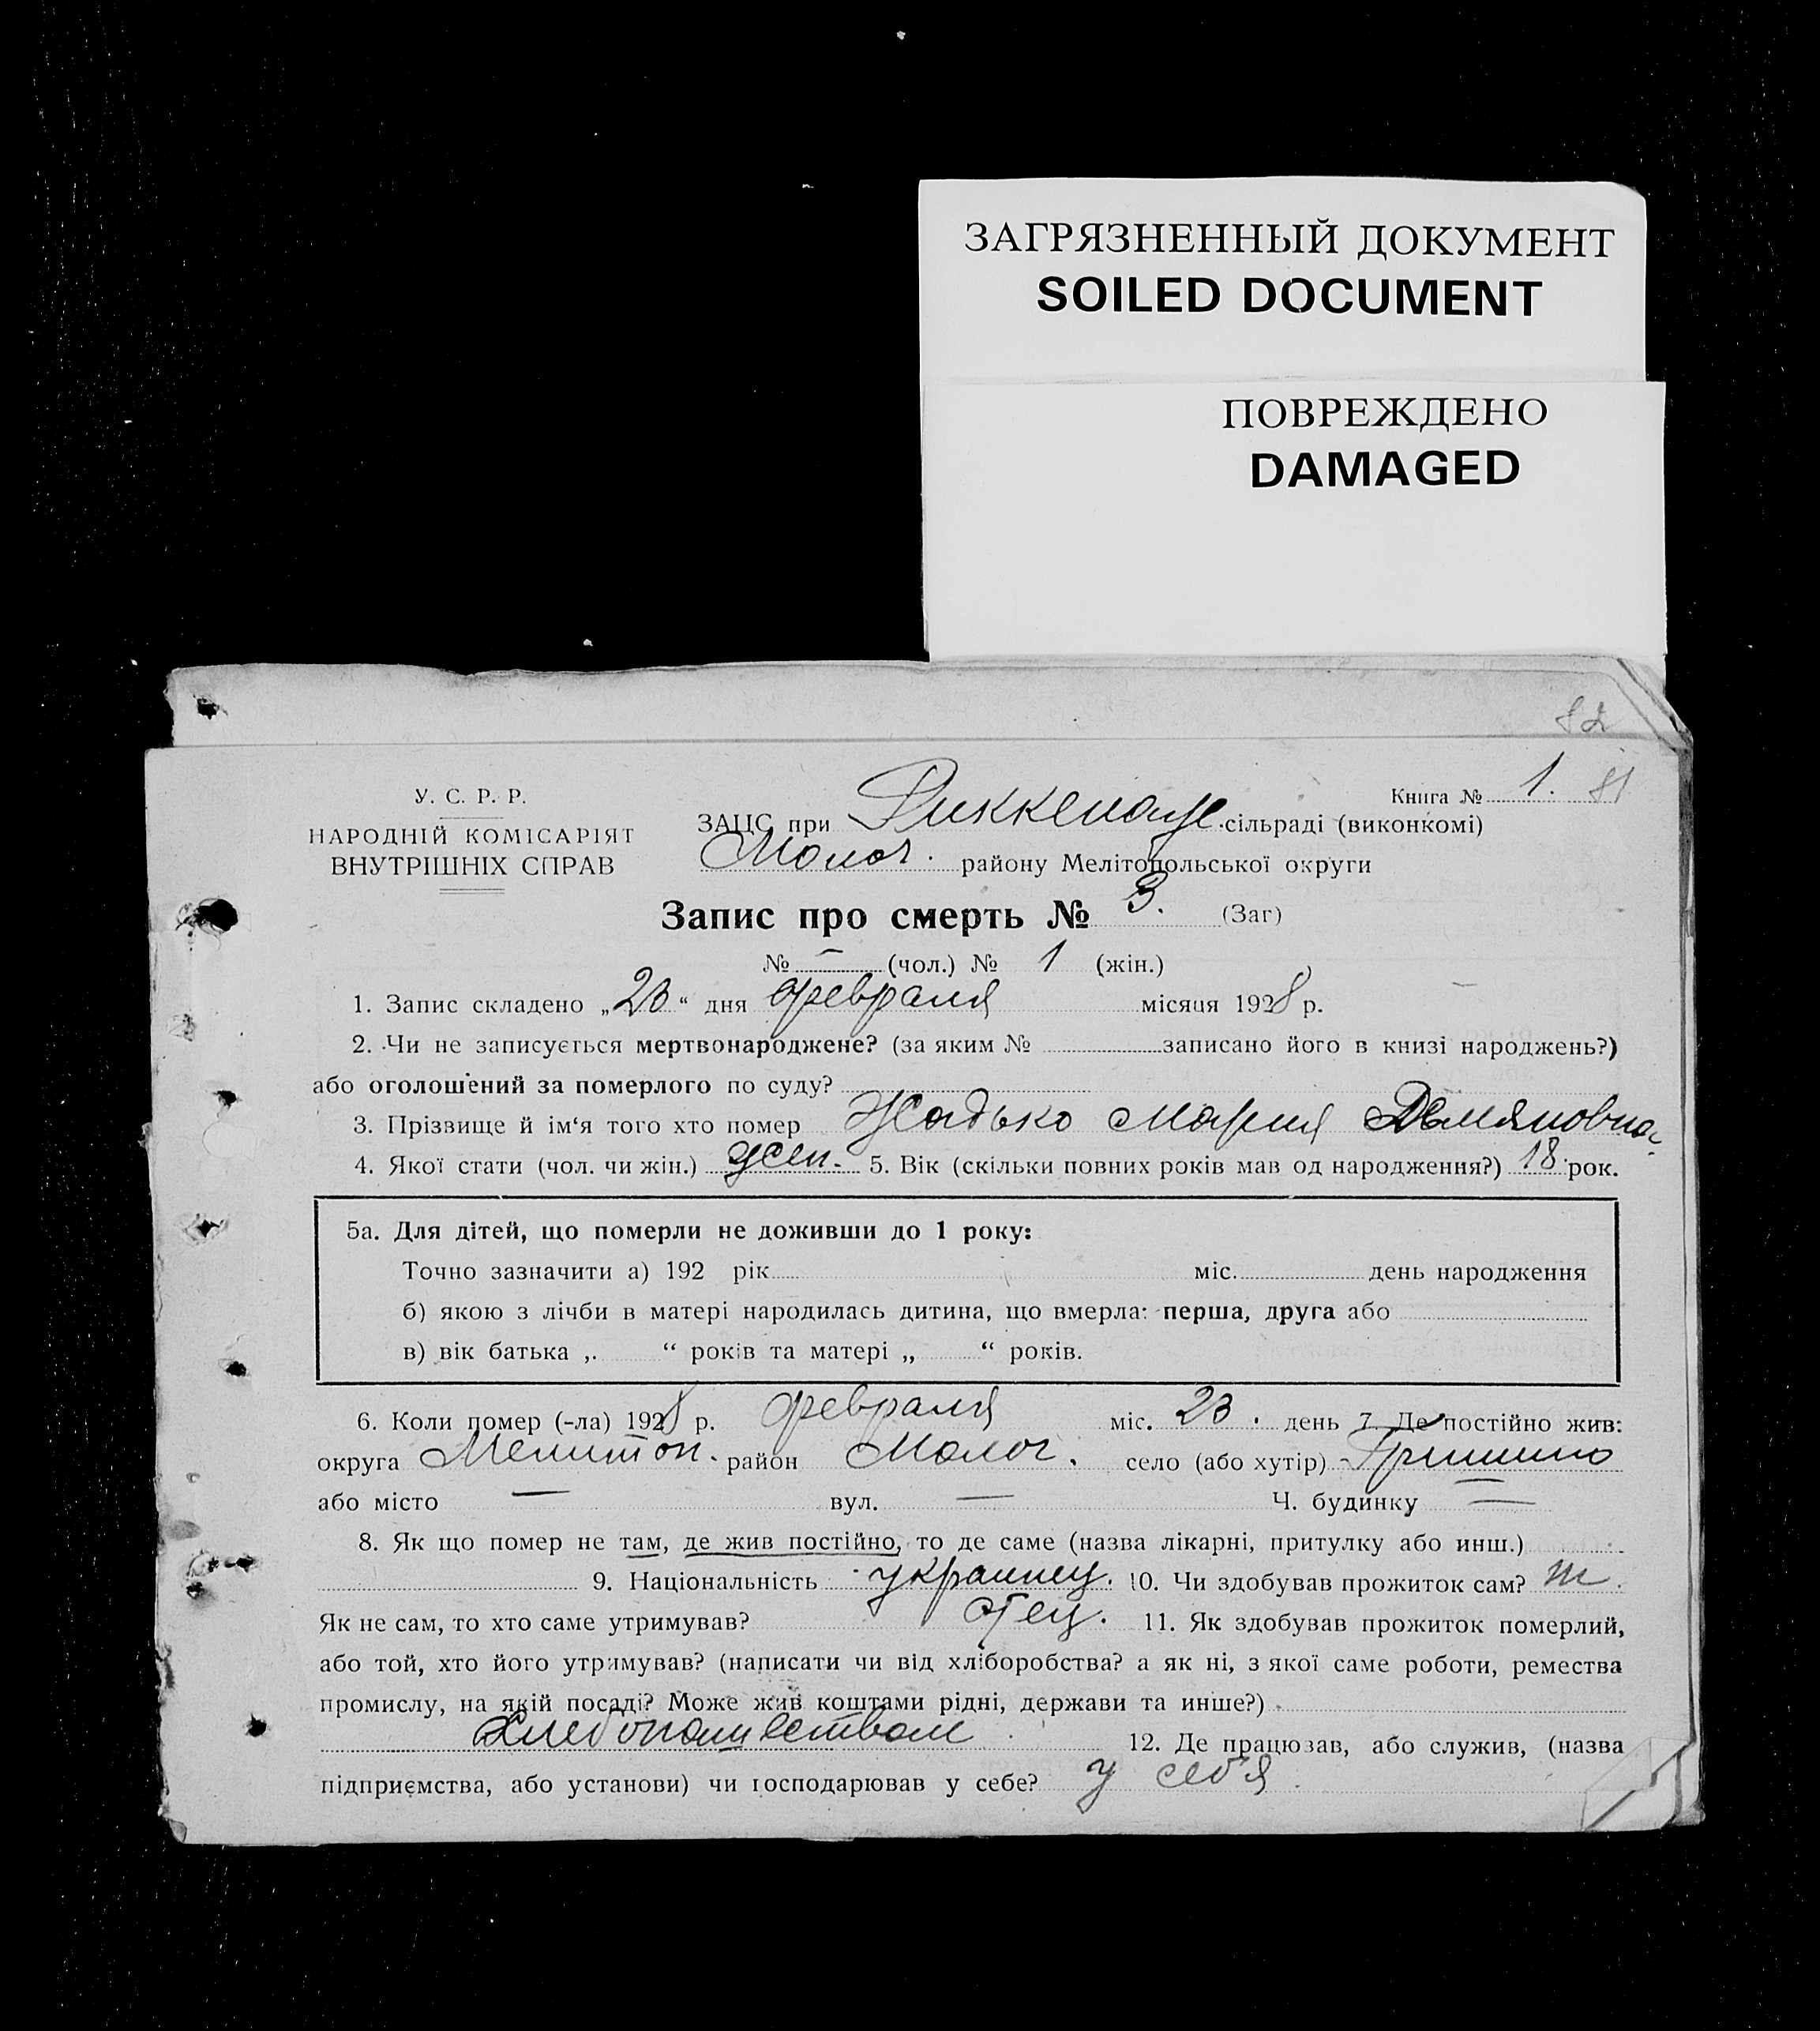 ЗАГРЯЗНЕННЫЙ ДОКУМЕНТ
SOILED DOCUMENT
ПОВРЕЖДЕНО
DAMAGED
82
У. С. Р. Р.
НАРОДНІЙ КОМІСАРІЯТ
ВНУТРІШНІХ СПРАВ
Книга № 1. 81
ЗАЦС при Риккенауе сільраді (виконкомі)
Молоч. району Мелітопольської округи
Запис про смерть № 3. (Заг)
№ – (чол.) № 1 (жін.)
1. Запис складено „23“ дня февраля місяця 1928 р.
2. Чи не записується мертвонароджене? (за яким № записано його в книзі народжень?)
або оголошений за померлого по суду?
3. Прізвище й ім‘я того хто помер Жадько Мария Демяновна
4. Якої стати (чол. чи жін.) жен. 5. Вік (скільки повних років мав од народження?) 18 рок.
5а. Для дітей, що померли не доживши до 1 року:
Точно зазначити а) 192 рік міс. день народження
б) якою з лічби в матері народилась дитина, що вмерла: перша, друга або
в) вік батька „ “ років та матері „ “ років.
6. Коли помер (-ла) 1928 р. февраля міс. 23. день 7. Де постійно жив:
округа Мелитоп. район Молоч. село (або хутір) Гришино
або місто — вул. — Ч. будинку —
8. Як що помер не там, де жив постійно, то де саме (назва лікарні, притулку або инш.)
9. Національність украинец. 10. Чи здобував прожиток сам?
Як не сам, то хто саме утримував? отец. 11. Як здобував прожиток померлий,
або той, хто його утримував? (написати чи від хліборобства? а як ні, з якої саме роботи, ремества
промислу, на якій посаді? Може жив коштами рідні, держави та инше?)
Хлебопашеством 12. Де працював, або служив, (назва
підприємства, або установи) чи господарював у себе? у себя